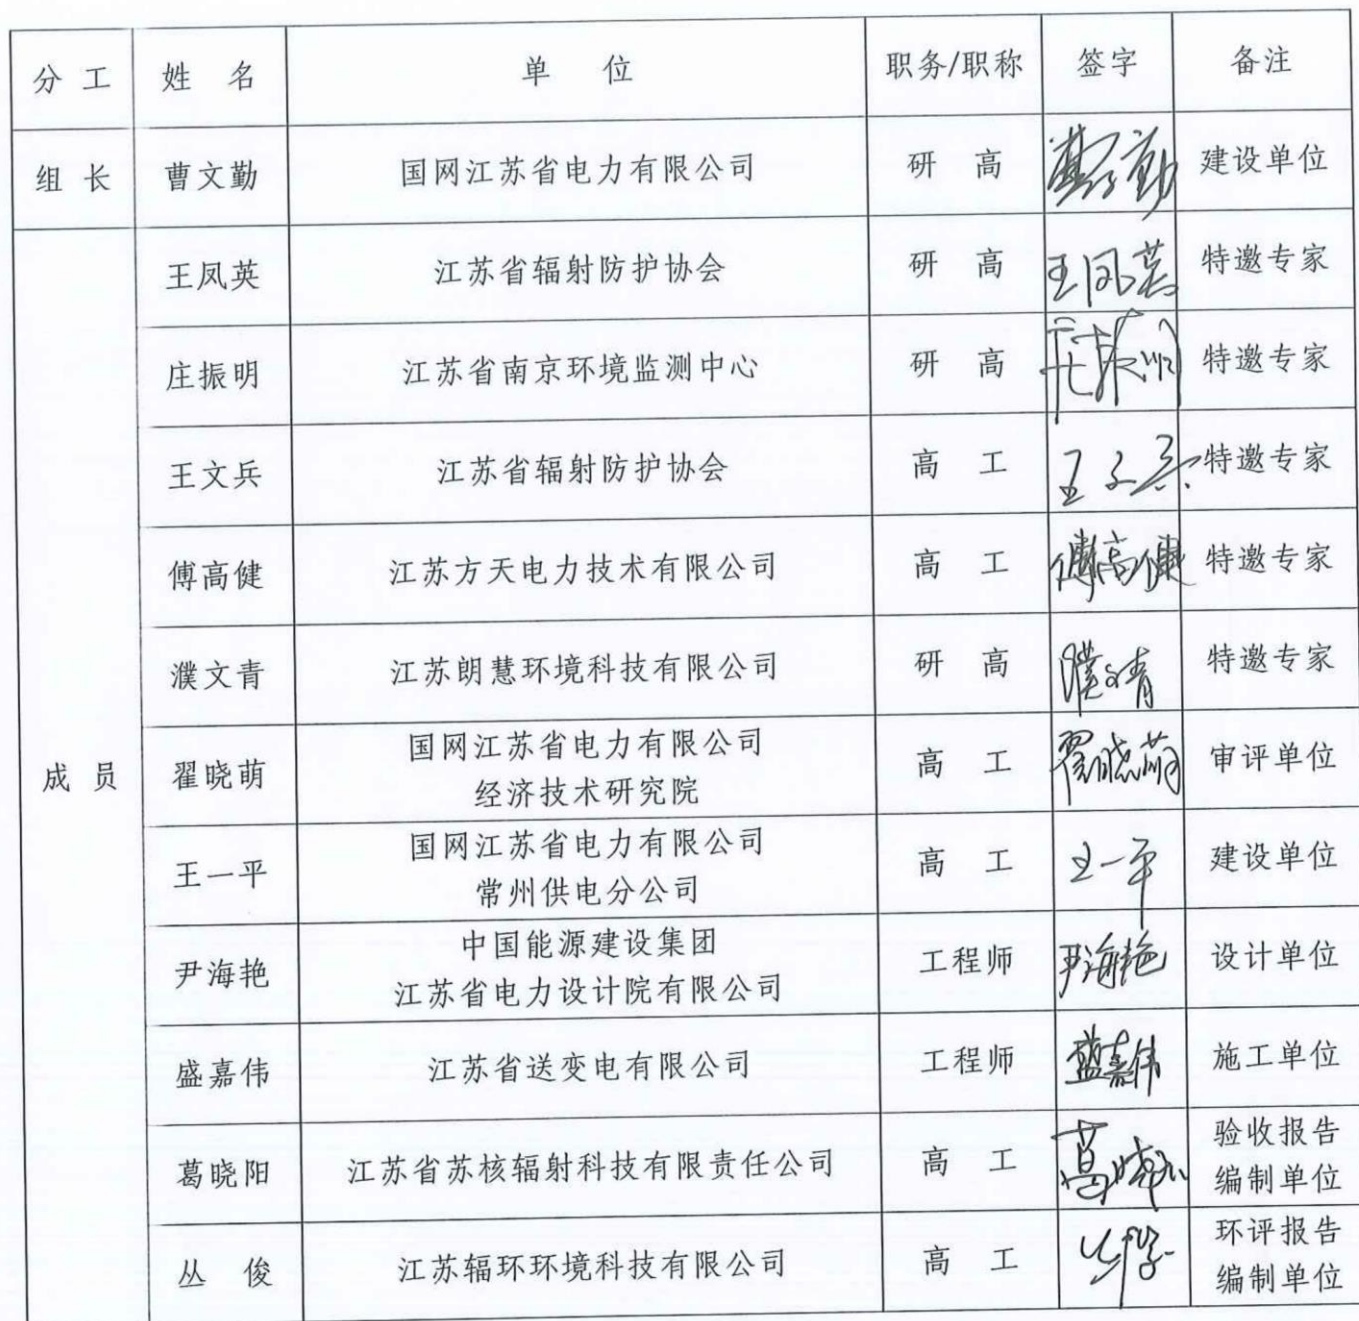 分 工 姓 名 单 位 职务/职称 签字 备注
组 长 曹文勤 国网江苏省电力有限公司 研 高 曹文勤 建设单位
王凤英 江苏省辐射防护协会 研 高 王凤英 特邀专家
庄振明 江苏省南京环境监测中心 研 高 庄振明 特邀专家
王文兵 江苏省辐射防护协会 高 工 王文兵 特邀专家
傅高健 江苏方天电力技术有限公司 高 工 傅高健 特邀专家
濮文青 江苏朗慧环境科技有限公司 研 高 濮文青 特邀专家
成 员 翟晓萌 国网江苏省电力有限公司
经济技术研究院 高 工 翟晓萌 审评单位
王一平 国网江苏省电力有限公司
常州供电分公司 高 工 王一平 建设单位
尹海艳 中国能源建设集团
江苏省电力设计院有限公司 工程师 尹海艳 设计单位
盛嘉伟 江苏省送变电有限公司 工程师 盛嘉伟 施工单位
葛晓阳 江苏省苏核辐射科技有限责任公司 高 工 葛晓阳 验收报告
编制单位
丛 俊 江苏辐环环境科技有限公司 高 工 丛俊 环评报告
编制单位